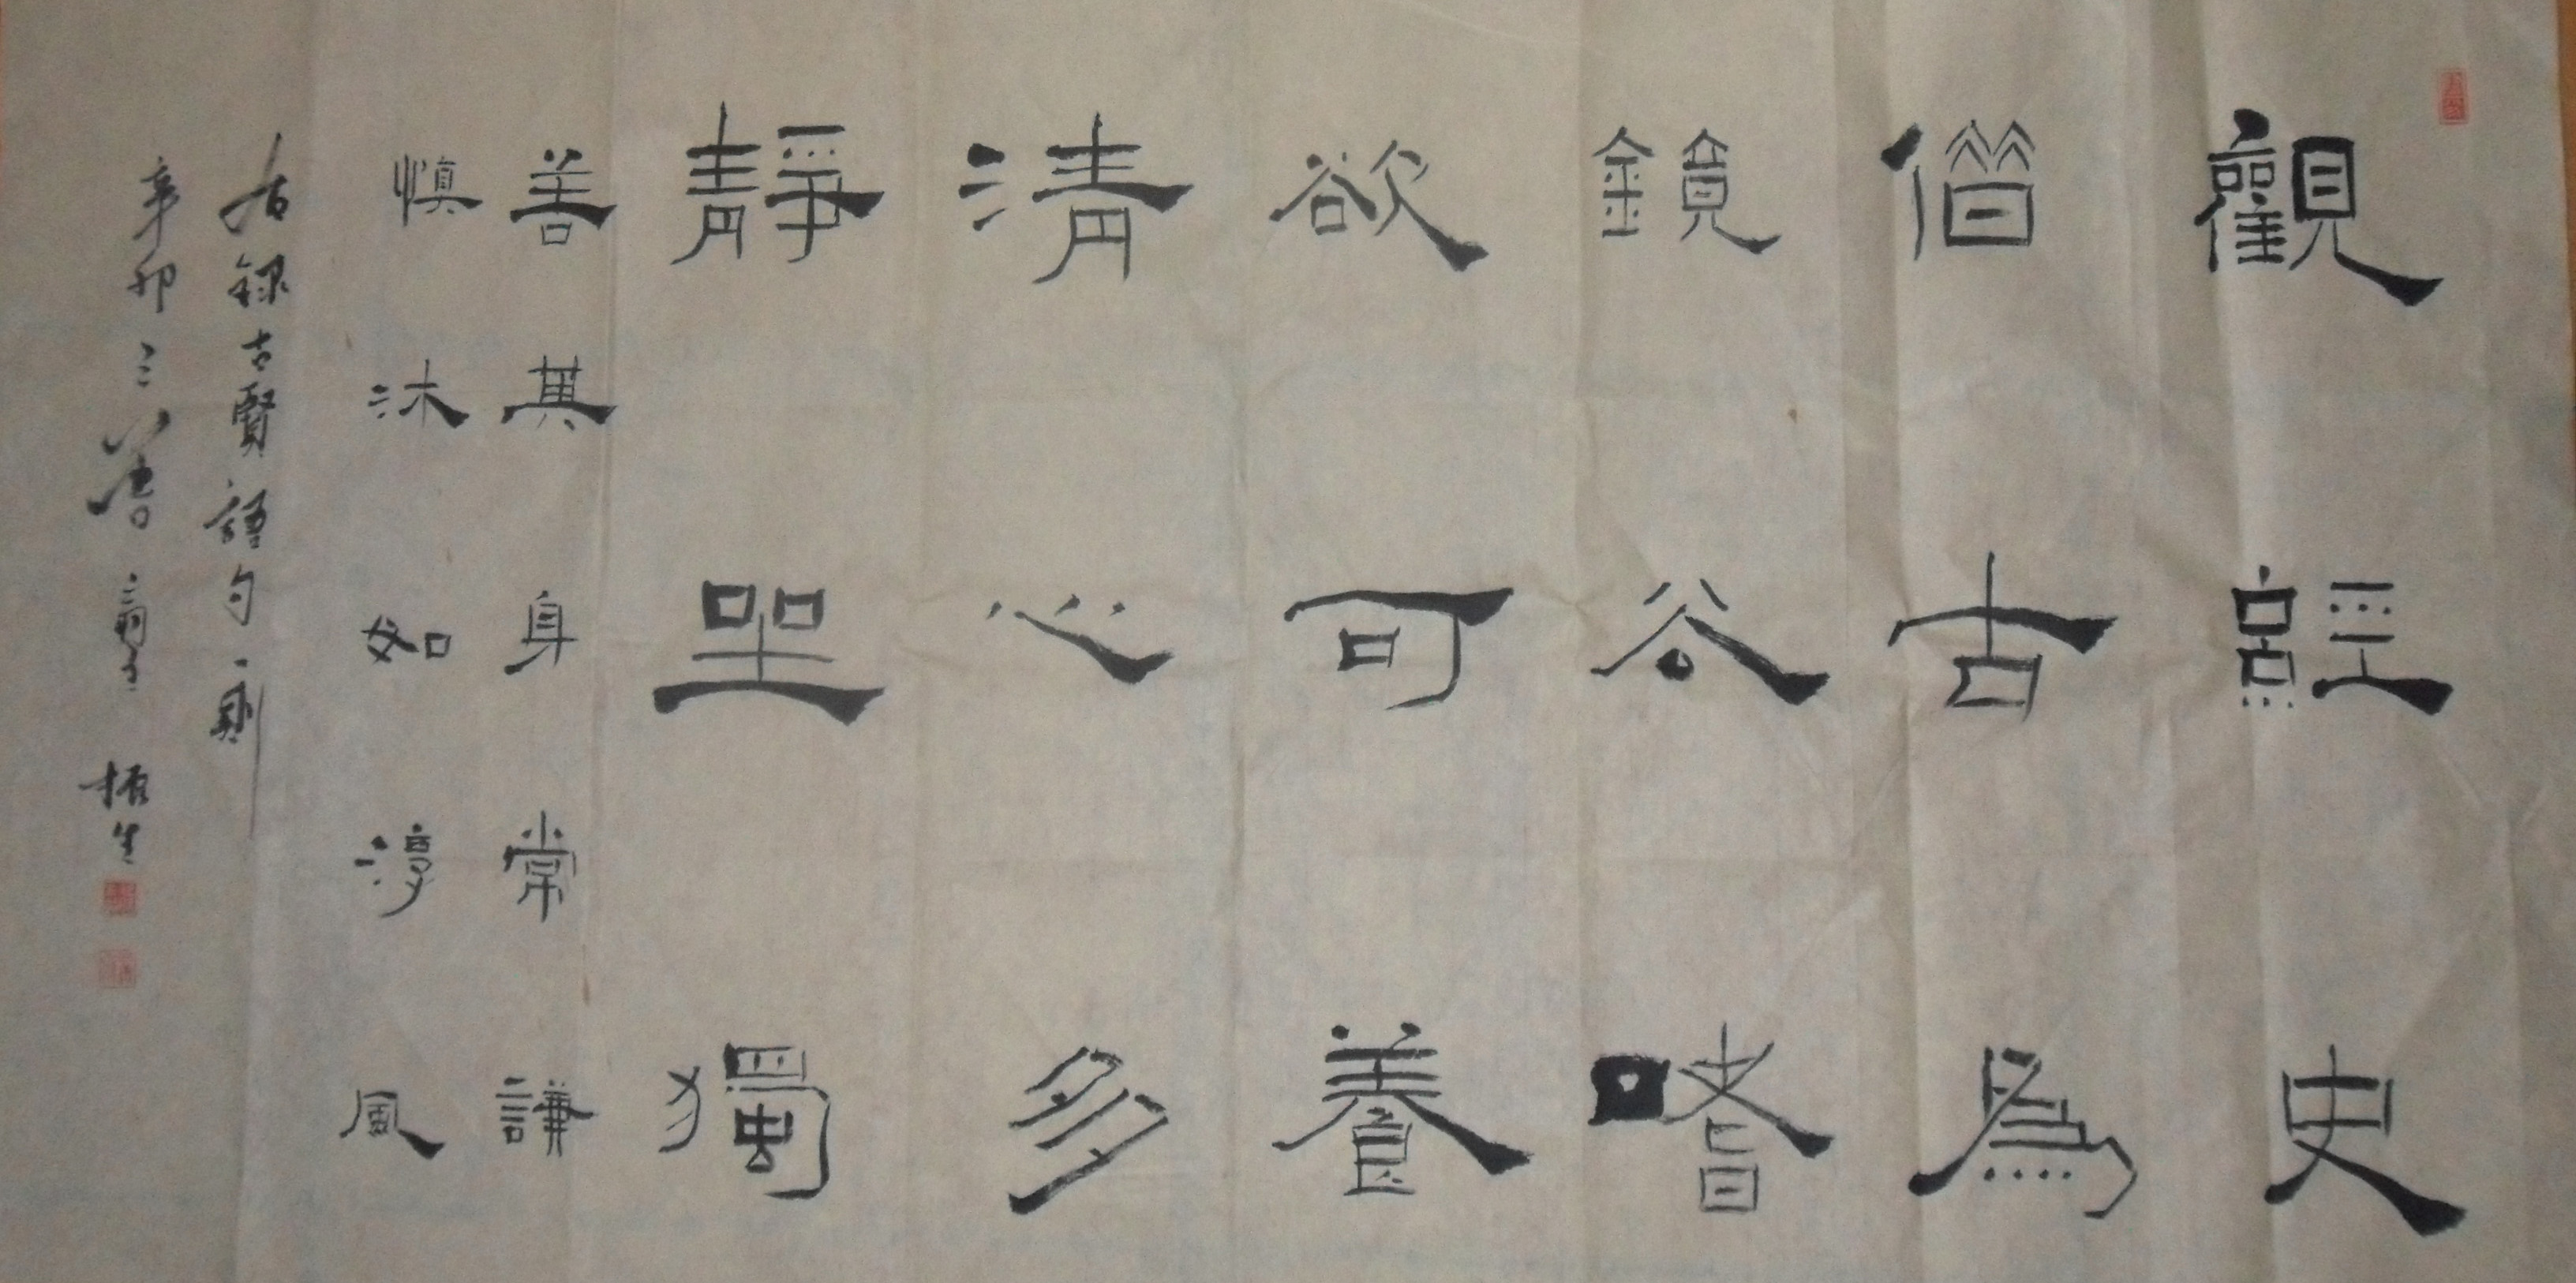 觀經史
借古為
鏡公嗜
欲可養
清心多
靜坐獨
善其身常謙
慎沐如淳風
右録古賢語句一則
辛卯三 振生